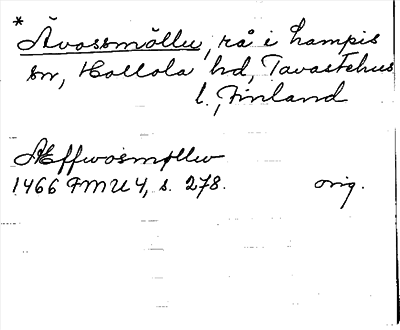 *
Ävossmöllu, rå i Lampis
sn, Hollola hd, Tavastehus
l., Finland
Æffwosmøllw
1466 FMU 4, s. 278. orig.